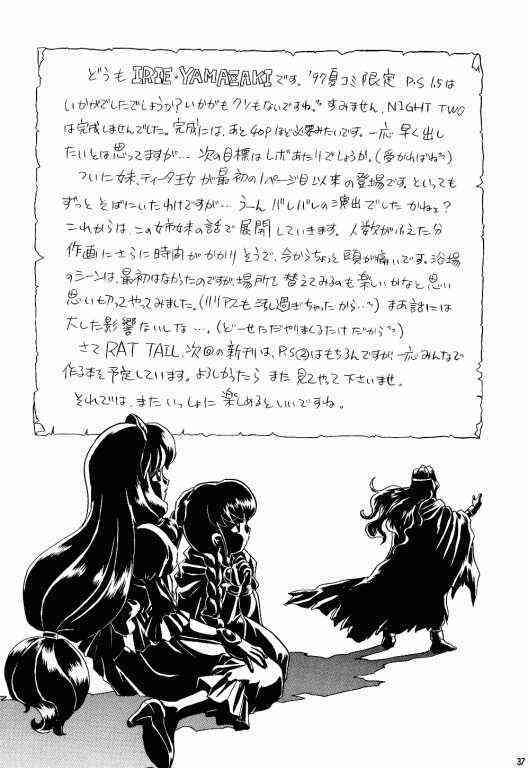 どうも IRIE・YAMAZAKIです。'97夏コミ限定 P.S 1.5は
いかがでしたでしょうか?いかがもクソもないですね。すみません、NIGHT TWO
は完成しませんでした。完成には、あと40Pほど必要みたいです。一応 早く出し
たいとは思ってますが… 次の目標はレボあたりでしょうか。(受かればね)
ついに妹、ティータ王女が最初の1ページ目以来の登場です。といっても
ずっと そばにいたわけですが… うーん バレバレの演出でした かねぇ?
これからは、この姉妹の話で展開していきます。人数がふえた分
作画にさらに時間がかかりそうで、今からちょっと頭が痛いです。浴場
のシーンは、最初はなかったのですが、場所を替えてみるのも楽しいかなと思い
思い切ってやってみました。(リリアスも汚し過ぎちゃったから…) まあ話には
大した影響ないしな…。(どーせただやりまくるだけだから)
さて RAT TAIL、次回の新刊は、P.S②はもちろんですが一応みんなで
作る本を予定しています。よろしかったら また見てやって下さいませ。
それでは、またいっしょに楽しめるといいですね。
37